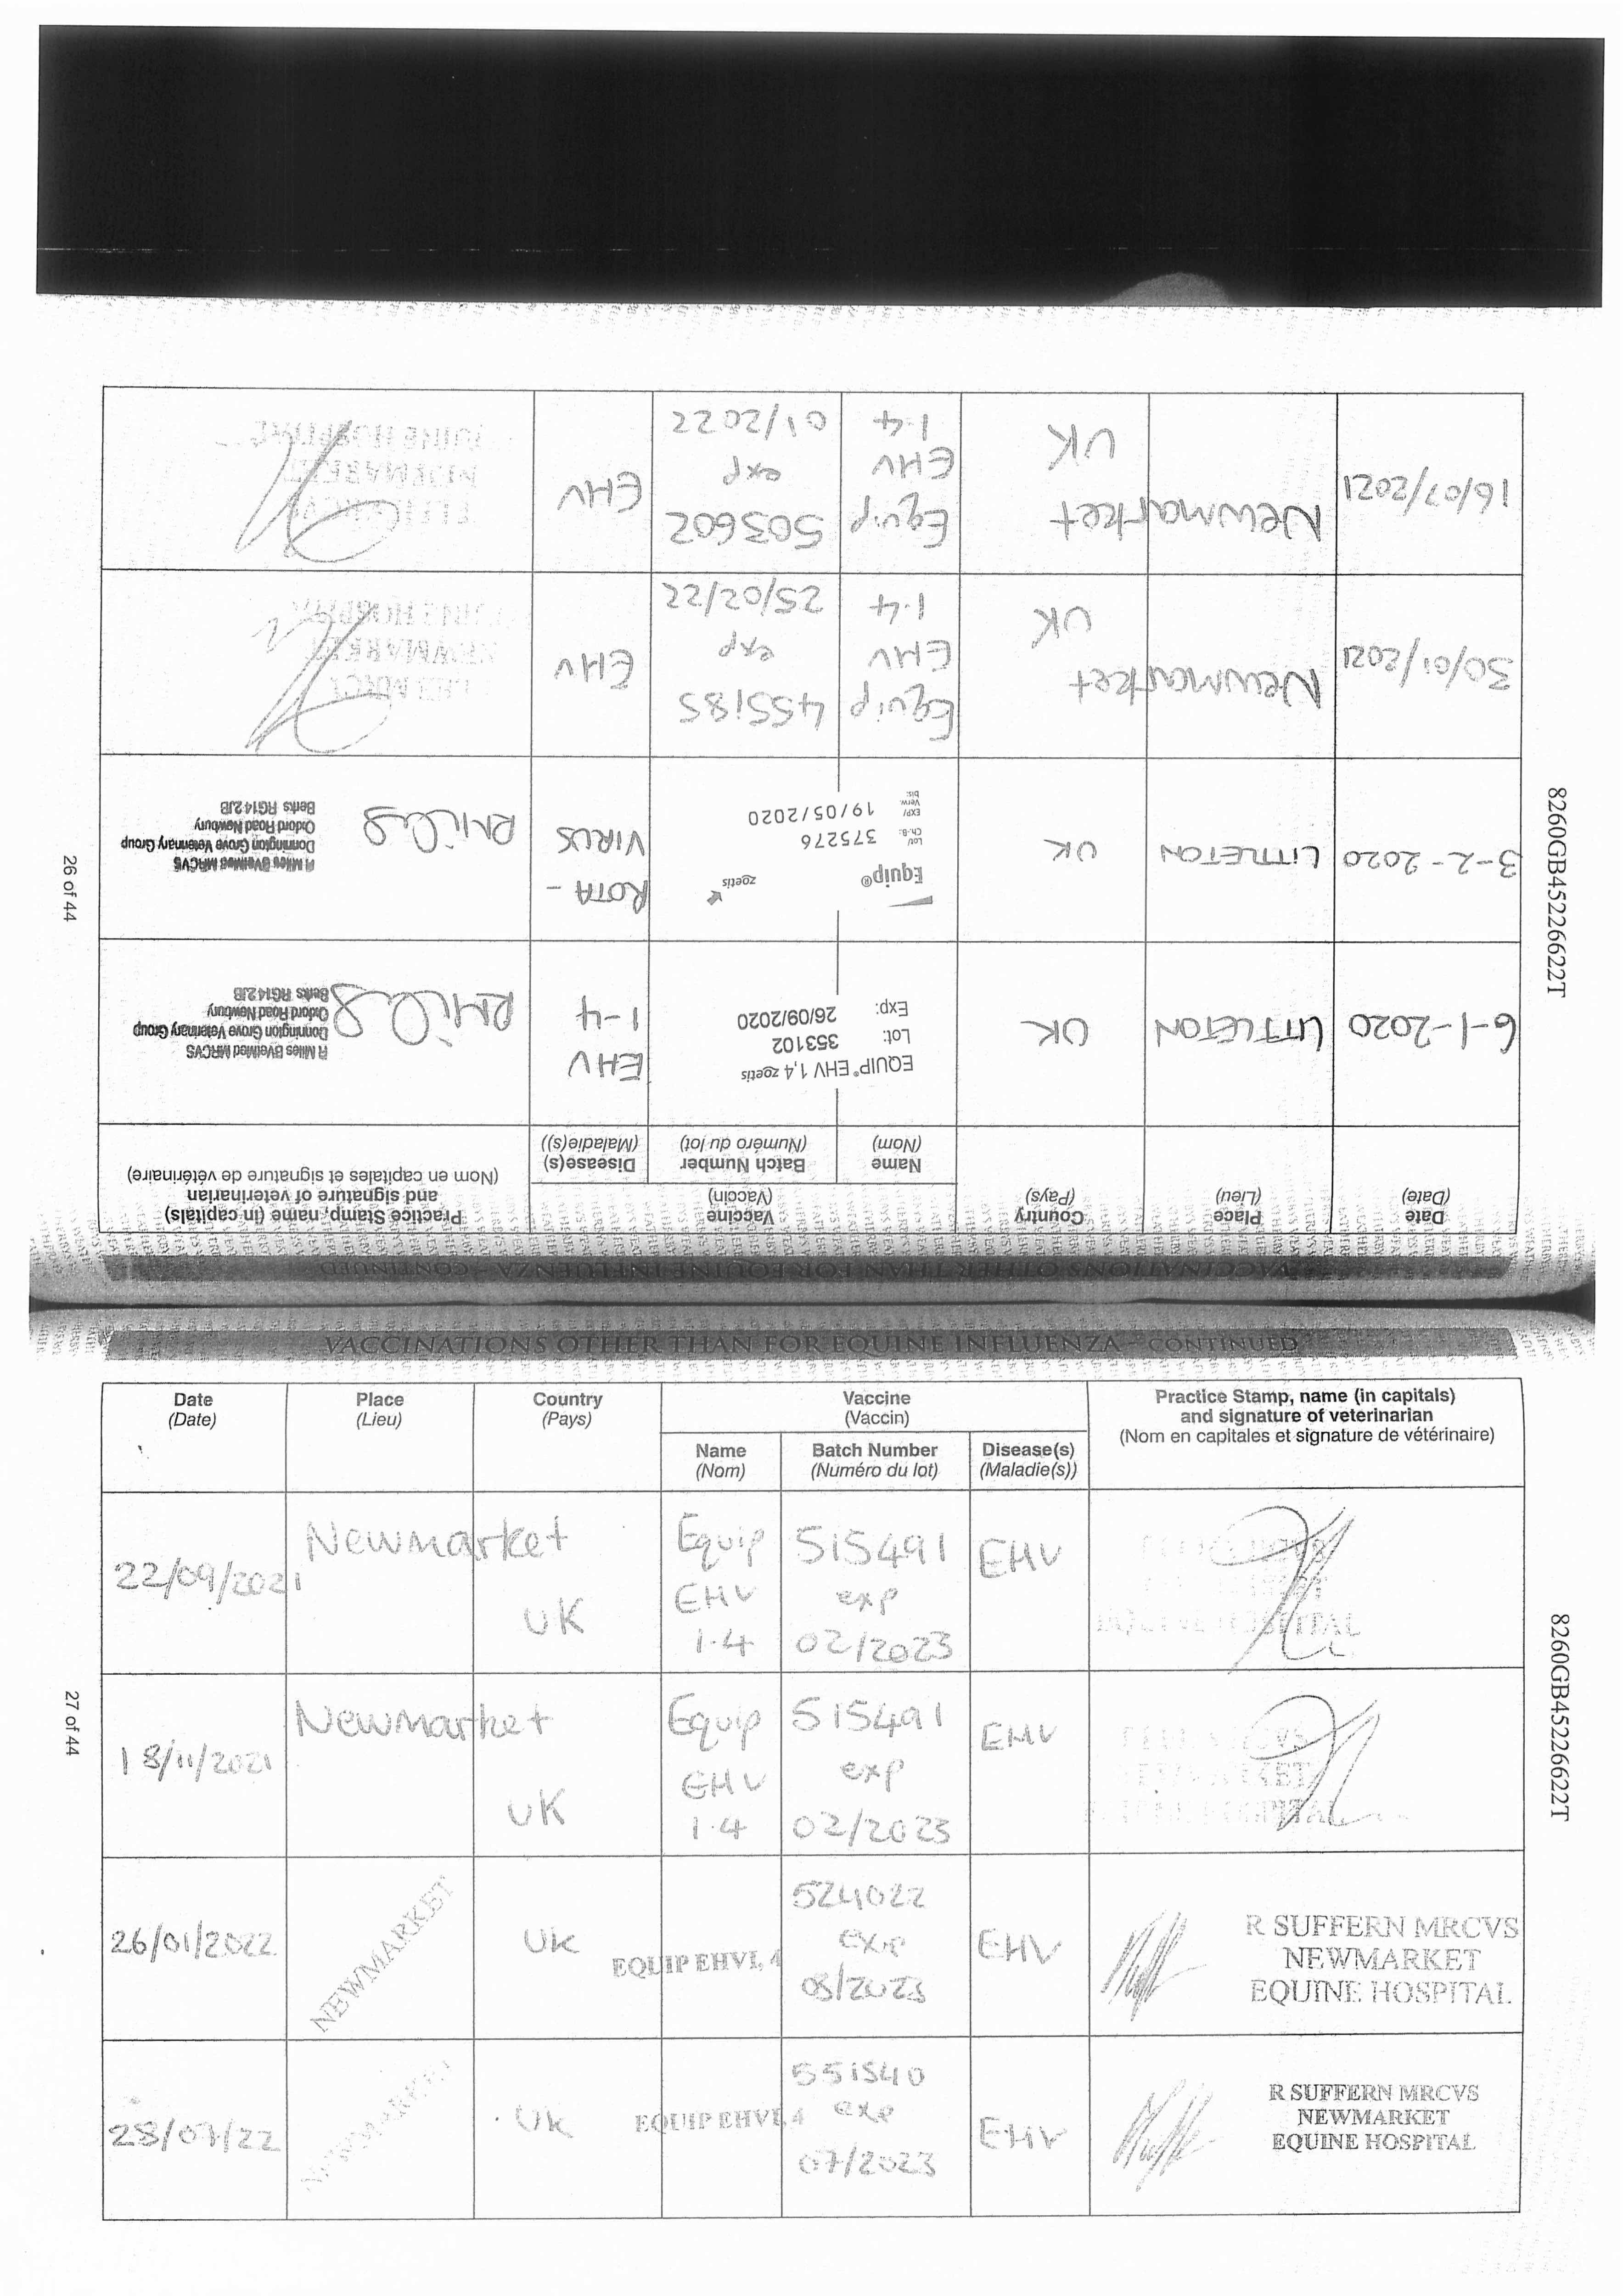 VACCINATIONS OTHER THAN FOR EQUINE INFLUENZA – CONTINUED
Date
(Date)
Place
(Lieu)
Country
(Pays)
Vaccine
(Vaccin)
Name
(Nom)
Batch Number
(Numéro du lot)
Disease(s)
(Maladie(s))
Practice Stamp, name (in capitals)
and signature of veterinarian
(Nom en capitales et signature de vétérinaire)
6-1-2020
LITTLETON
UK
EQUIP® EHV 1,4 zoetis
Lot: 353102
Exp: 26/09/2020
EHV
1-4
RMiles
R Miles BVetMed MRCVS
Donnington Grove Veterinary Group
Oxford Road Newbury
Berks RG14 2JB
3-2-2020
LITTLETON
UK
Equip® zoetis
Lot/
Ch-B: 375276
EXP/
Verw.
bis: 19/05/2020
ROTA-
VIRUS
RMiles
R Miles BVetMed MRCVS
Donnington Grove Veterinary Group
Oxford Road Newbury
Berks RG14 2JB
30/01/2021
Newmarket
UK
Equip
EHV
1.4
455185
exp
25/02/22
EHV
NEWMARKET
16/07/2021
Newmarket
UK
Equip
EHV
1.4
503602
exp
01/2022
EHV
NEWMARKET
26 of 44
8260GB45226622T
VACCINATIONS OTHER THAN FOR EQUINE INFLUENZA – CONTINUED
Date
(Date)
Place
(Lieu)
Country
(Pays)
Vaccine
(Vaccin)
Name
(Nom)
Batch Number
(Numéro du lot)
Disease(s)
(Maladie(s))
Practice Stamp, name (in capitals)
and signature of veterinarian
(Nom en capitales et signature de vétérinaire)
22/09/2021
Newmarket
UK
Equip
EHV
1.4
515491
exp
02/2023
EHV
HOSPITAL
18/11/2021
Newmarket
UK
Equip
EHV
1.4
515491
exp
02/2023
EHV
NEWMARKET
HOSPITAL
26/01/2022
NEWMARKET
UK
EQUIP EHV1, 4
524022
exp
03/2023
EHV
R SUFFERN MRCVS
NEWMARKET
EQUINE HOSPITAL
28/07/22
NEWMARKET
UK
EQUIP EHV1, 4
551540
exp
07/2023
EHV
R SUFFERN MRCVS
NEWMARKET
EQUINE HOSPITAL
27 of 44
8260GB45226622T